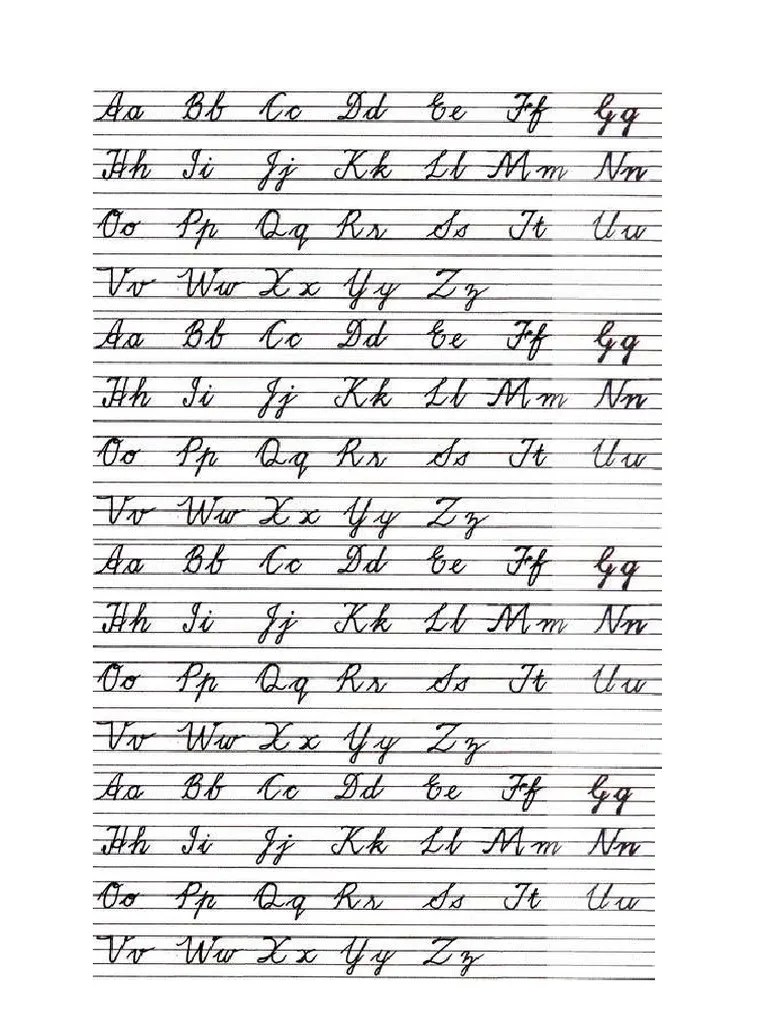 Aa Bb Cc Dd Ee Ff Gg
Hh Ii Jj Kk Ll Mm Nn
Oo Pp Qq Rr Ss Tt Uu
Vv Ww Xx Yy Zz
Aa Bb Cc Dd Ee Ff Gg
Hh Ii Jj Kk Ll Mm Nn
Oo Pp Qq Rr Ss Tt Uu
Vv Ww Xx Yy Zz
Aa Bb Cc Dd Ee Ff Gg
Hh Ii Jj Kk Ll Mm Nn
Oo Pp Qq Rr Ss Tt Uu
Vv Ww Xx Yy Zz
Aa Bb Cc Dd Ee Ff Gg
Hh Ii Jj Kk Ll Mm Nn
Oo Pp Qq Rr Ss Tt Uu
Vv Ww Xx Yy Zz